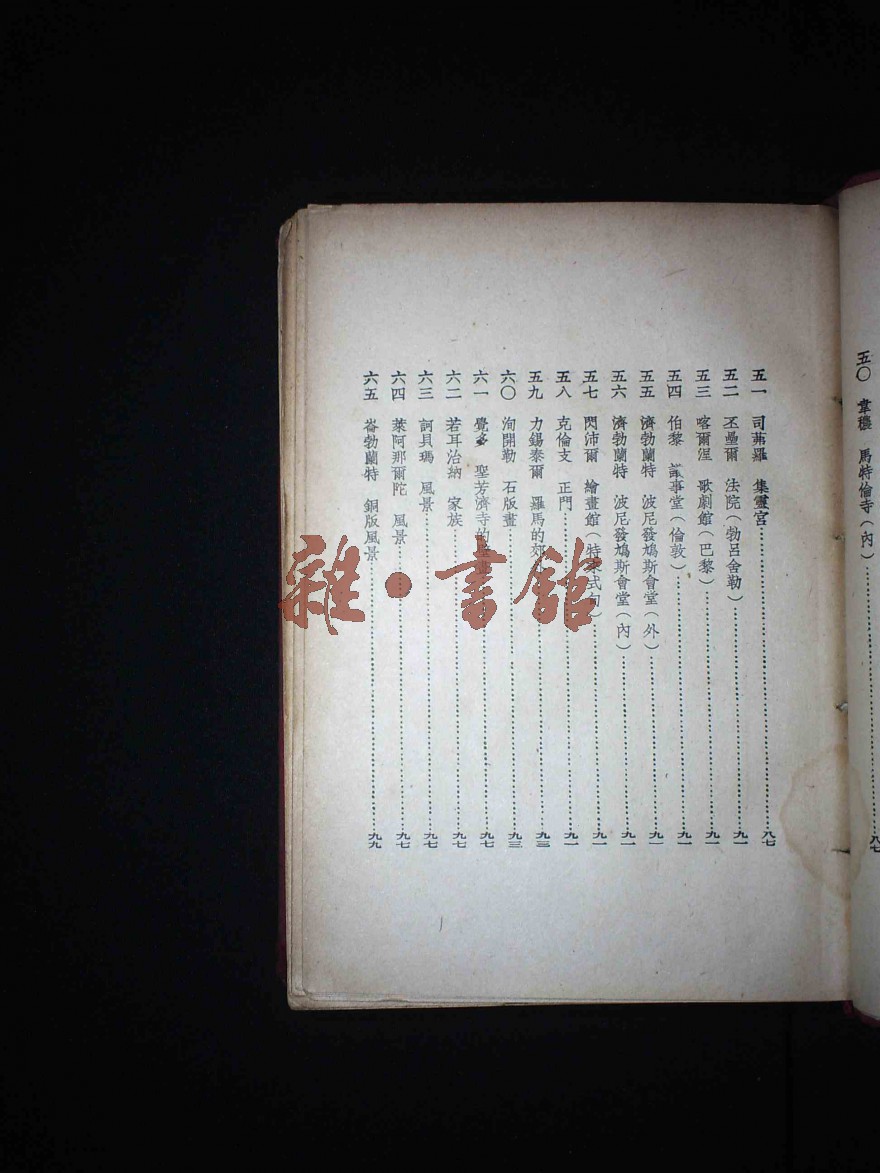 五〇 韋穰 馬特倫寺（內）……八七
五一 司茀羅 集靈宮……八七
五二 丕壘爾 法院（勃呂舍勒）……九一
五三 喀爾涅 歌劇館（巴黎）……九一
五四 伯黎 議事堂（倫敦）……九一
五五 濟勃蘭特 波尼發鳩斯會堂（外）……九一
五六 濟勃蘭特 波尼發鳩斯會堂（內）……九一
五七 閃沛爾 繪畫館（特 式 ）……九一
五八 克倫支 正門……九一
五九 力錫泰爾 羅馬的郊……九三
六〇 洵開勒 石版畫……九三
六一 覺多 聖芳濟寺的 畫……九七
六二 若耳治納 家族……九七
六三 訶貝瑪 風景……九七
六四 萊阿那爾陀 風景……九七
六五 崙勃蘭特 銅版風景……九九
雜·書館